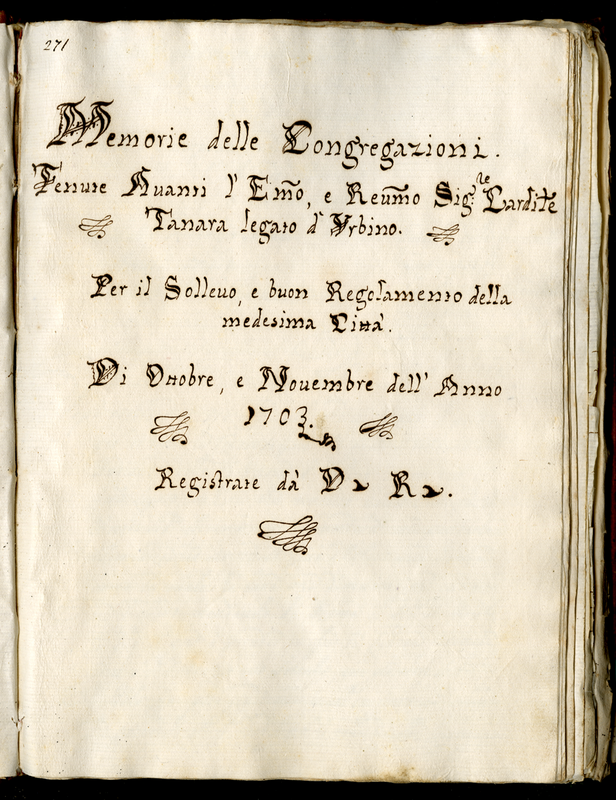 271
Memorie delle Congregazioni.
Tenute Auanti l' Em̃o, e Reum̃o Sig.re Cardile
Tanara legato d' Vrbino.
Per il Solleuo, e buon Regolamento della
medesima Città.
Di Ottobre, e Nouembre dell' Anno
1703.
Registrate dà D R.